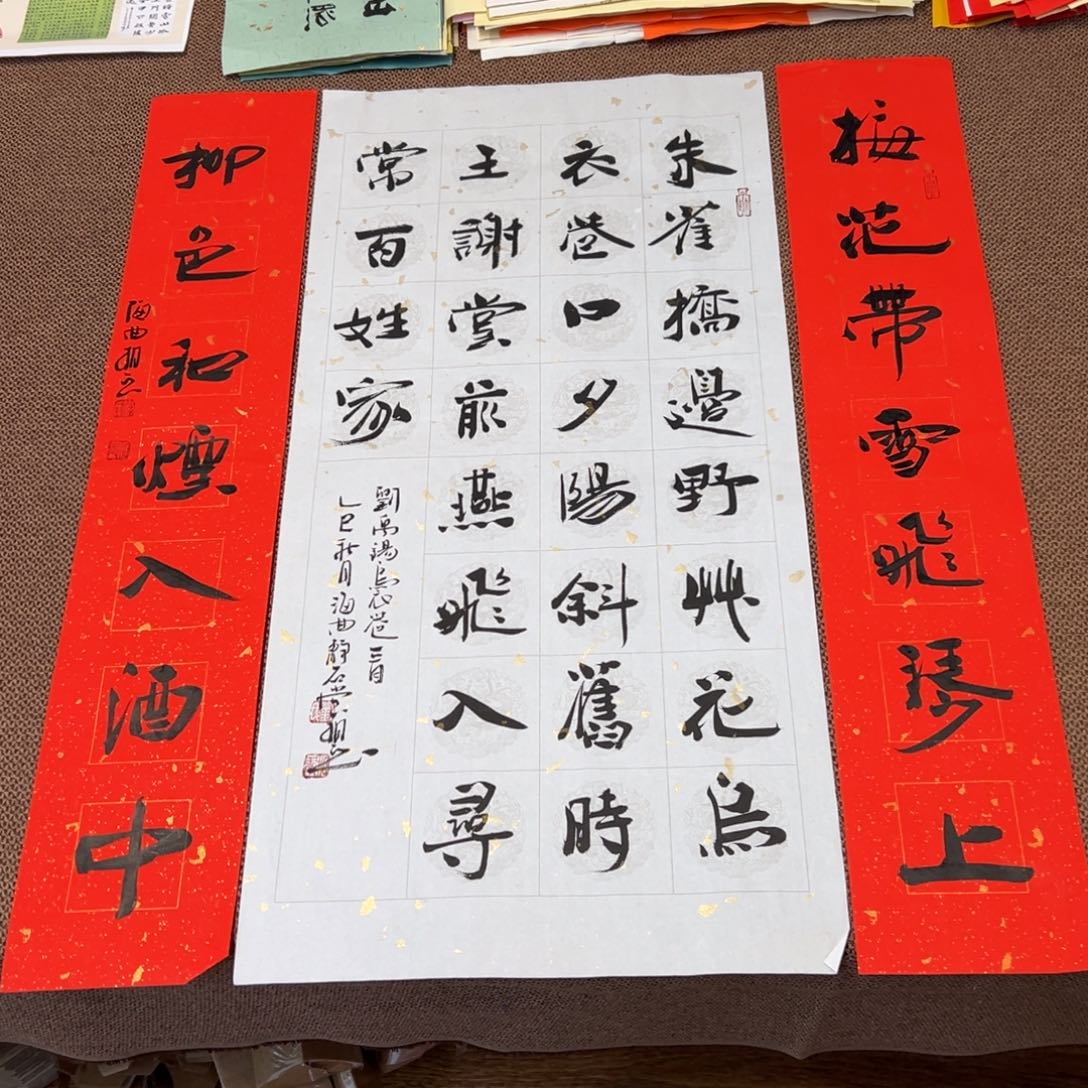 梅花帶雪飛琴上
朱雀橋邊野艸花烏
衣巷口夕陽斜舊時
王謝堂前燕飛入尋
常百姓家
劉禹錫烏衣巷一首
乙巳秋月海曲靜石堂
柳色和煙入酒中
海曲